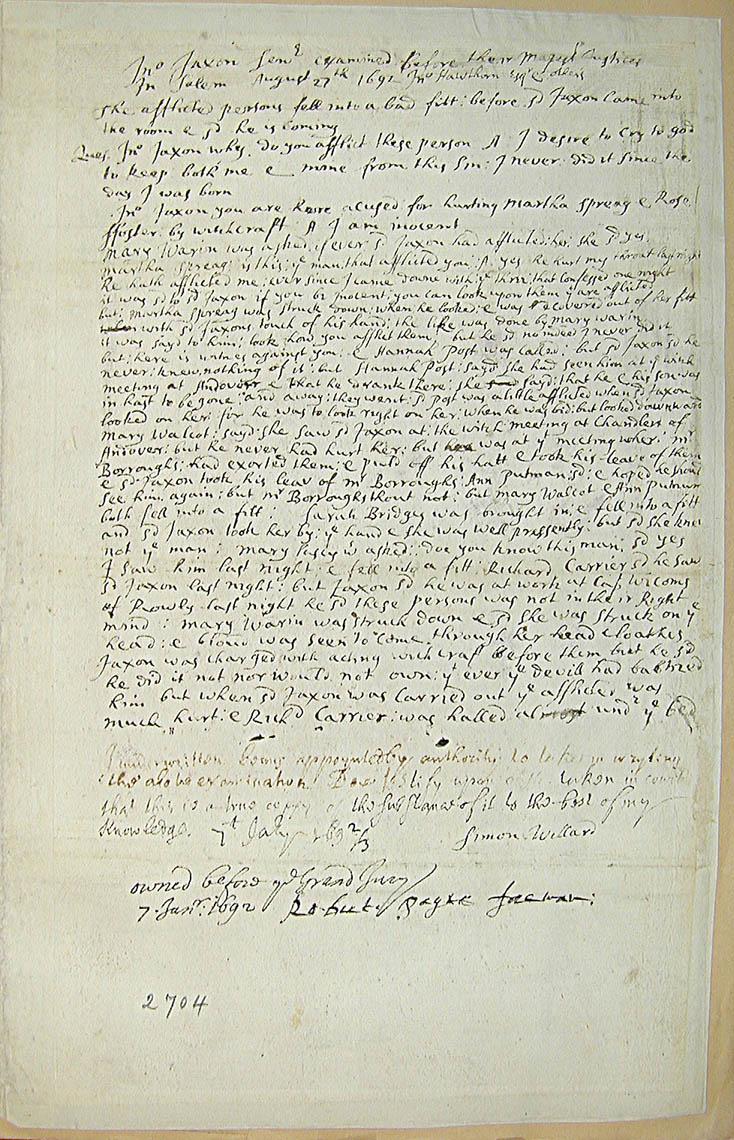 Jno Jaxon Senr examined before their Majests Justices
In Salem August 27th 1692 Jno Hawthorn Esqr & others
The afflicted persons fell into a bad fitt: before sd Jaxon Came into
the room & sd he is coming
Ques. Jno Jaxon whey do you afflict these person A I desire to Cry to god
to keep both me & mine from this Sin: I never did it Since the
day I was born
Jno Jaxon you are here acused for hurting martha Spreag & Rose
ffoster: by witchcraft: A I am inocent
Mary Warin was asked if ever sd Jaxon had afflicted: her: she sd yes
martha spreag: is this: ye man: that afflicted you: A. yes he hurt my throat last night
he hath afflicted me: ever since I came downe with ye three: that confessed one night
it was sd to sd Jaxon if you be inocent: you can look upon them yt are afflicted
but: martha Spreag was struck down: when he looked: & was recovered out of her fitt
with sd Jaxons touch of his hand: the like was done by mary warin
it was sayd to him: look how you afflict them: but he sd no indeed I never did it
but: here is witnes against you: & Hannah Post was called: but sd Jaxon sd he
never: knew nothing of it: but Hannah Post: sayd she had seen him at ye witch
meeting at Andover & that he drank there: she sayd: that he & his son was
in hast to be gone: and away: they went: sd post was a litle afflicted when sd Jaxon
looked on her: for he was to look right on her: when he was bid: but looked downward
Mary Walcot: sayd: she saw sd Jaxon at: the witch meeting at Chandlers of
Andover: but he never had hurt her: but was at ye meeting wher: mr
Borroughs: had exorted them: & pul'd off his hatt & took his leave of them
& sd Jaxon took his leav of mr Borroughs: Ann putman: sd: & hoped he should
see him again: but mr Borroughs thout not: but mary Walcot & Ann putman
both fell into a fitt: Sarah Bridges was brought in: & fell into a fitt
and sd Jaxon took her by: ye hand & she was well pressently: but sd she knew
not ye man: mary Lasey is asked: doe you know this man: sd yes
I saw him last night: & fell into a fitt: Richard Carrier sd he saw
sd Jaxon last night: but Jaxon sd he was at work at Cap Wicoms
of Rowly last night he sd these persons was not in their Right
mind: mary Warin was struck down & sd she was struck on ye
head: & bloud was seen to come through her head cloathes
Jaxon was charged with acting witchcraft before them but he sd
he did it not nor would not own: yt ever ye devill had babtized
him but when sd Jaxon was Carried out ye afflicted was
much hurt: & Richd Carrier: was halled almost undr ye bed
I underwritten being appoynted by authority to take in wryting
the above examination Doe testify upon oath taken in court
that this is a true coppy of the substance of it to the best of my
Knowledge. 7t Janry 1692/3 Simon Willard
owned before ye Grand Jury
7. Janr. 1692 Robert Payne foreman:
2704